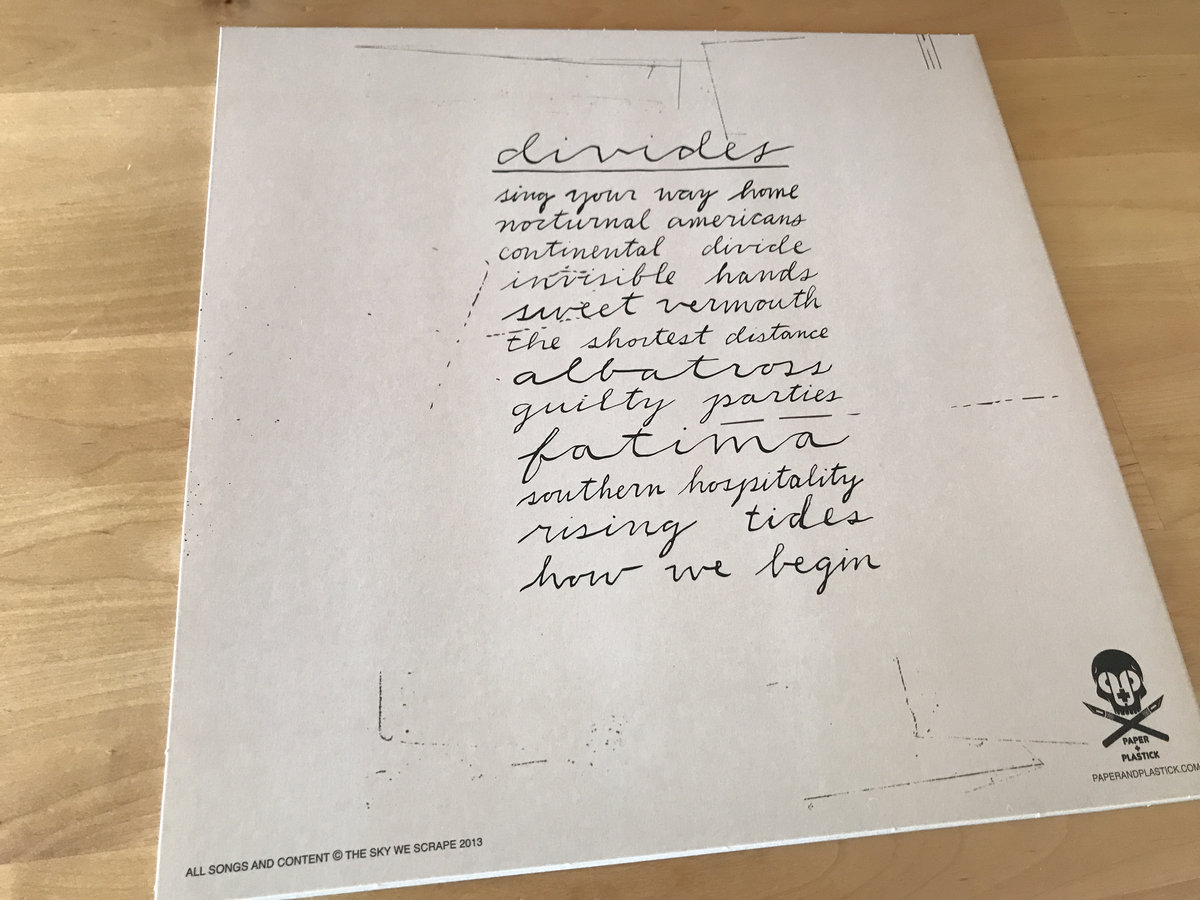 divides
sing your way home
nocturnal americans
continental divide
invisible hands
sweet vermouth
the shortest distance
albatross
guilty parties
fatima
southern hospitality
rising tides
how we begin
PAPER
+
PLASTICK
PAPERANDPLASTICK.COM
ALL SONGS AND CONTENT © THE SKY WE SCRAPE 2013